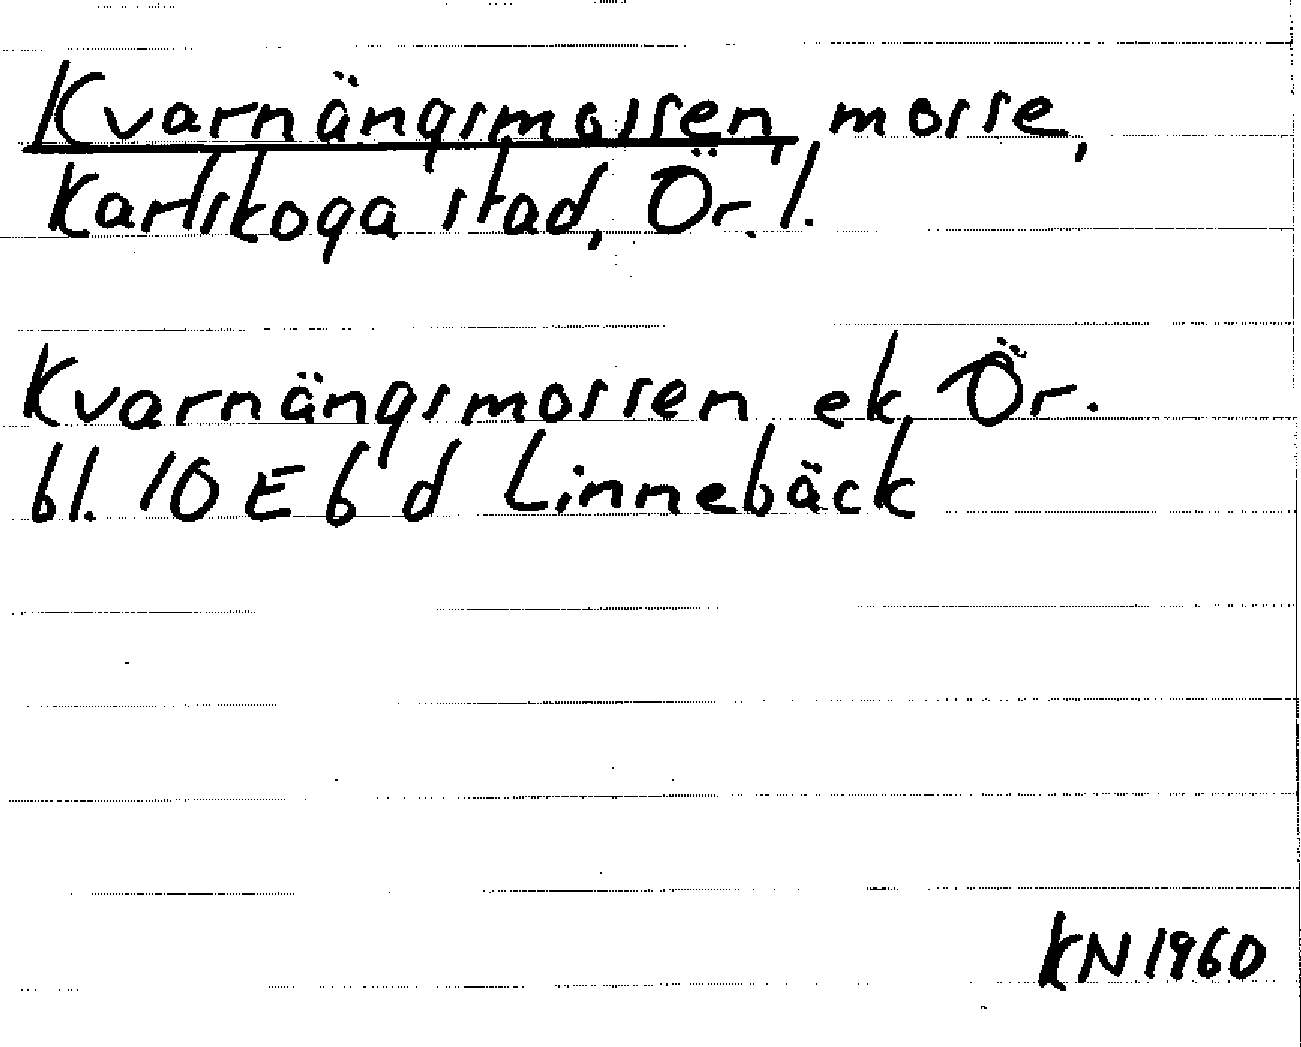 Kvarnängsmossen, mosse,
Karlskoga stad, Ör. l.
Kvarnängsmossen ek Ör.
bl. 10 E 6 d Linnebäck
KN 1960